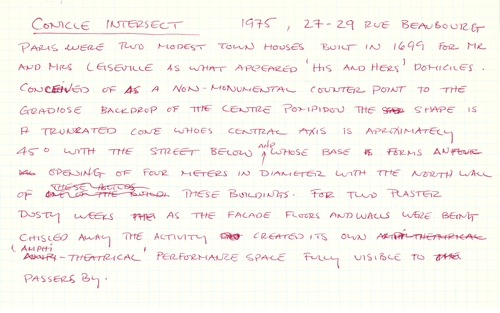 CONICLE INTERSECT 1975, 27-29 RUE BEAUBOURG
PARIS WERE TWO MODEST TOWN HOUSES BUILT IN 1699 FOR MR
AND MRS LEISEVILLE AS WHAT APPEARED 'HIS AND HERS' DOMICILES.
CONCEIVED OF AS A NON-MONUMENTAL COUNTER POINT TO THE
GRADIOSE BACKDROP OF THE CENTRE POMPIDOU THE SHAPE IS
A TRUNRATED CONE WHOES CENTRAL AXIS IS APROXIMATELY
45° WITH THE STREET BELOW AND WHOSE BASE FORMS AN
OPENING OF FOUR METERS IN DIAMETER WITH THE NORTH WALL
OF THESE BUILDINGS. FOR TWO PLASTER
DUSTY WEEKS AS THE FACADE FLOORS AND WALLS WERE BEING
CHISLED AWAY THE ACTIVITY CREATED ITS OWN
'AMPHI-THEATRICAL' PERFORMANCE SPACE FULLY VISIBLE TO
PASSERS BY.